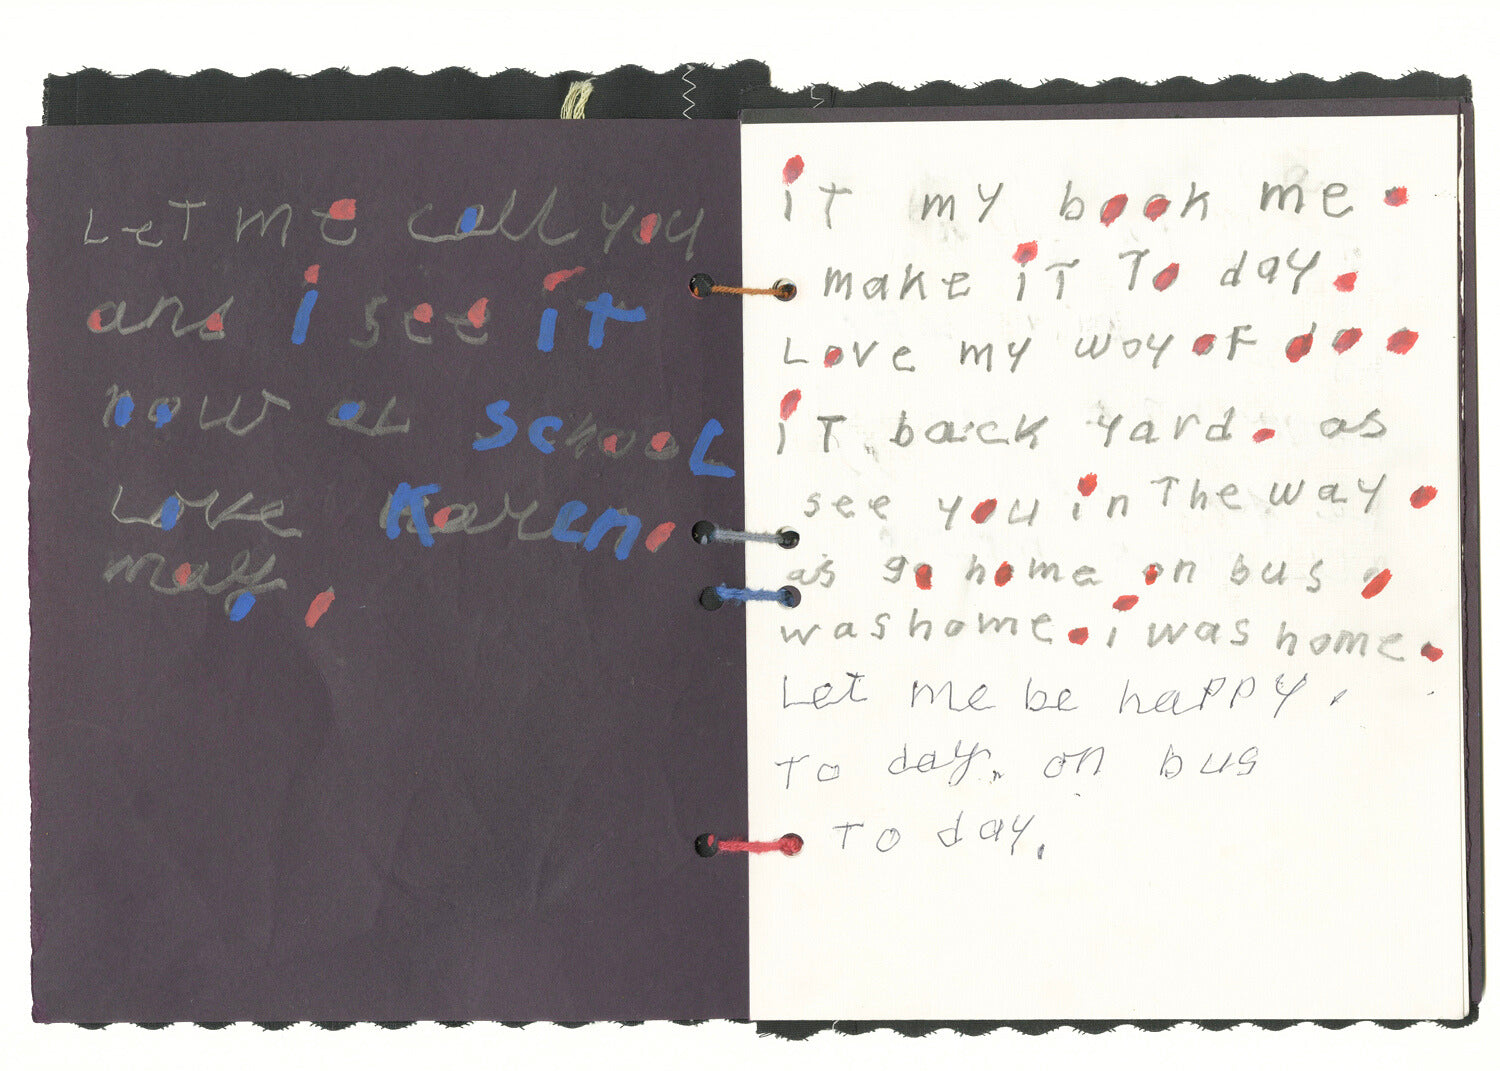 LeT me call you
and i see it
now at SchooL
Love Karen.
may,
iT my book me.
make iT To day.
Love my woy of doo
iT back yard. as
see you in The way.
as go home on bus,
was home. i was home.
Let me be haPPY.
To day. on bus
To day.